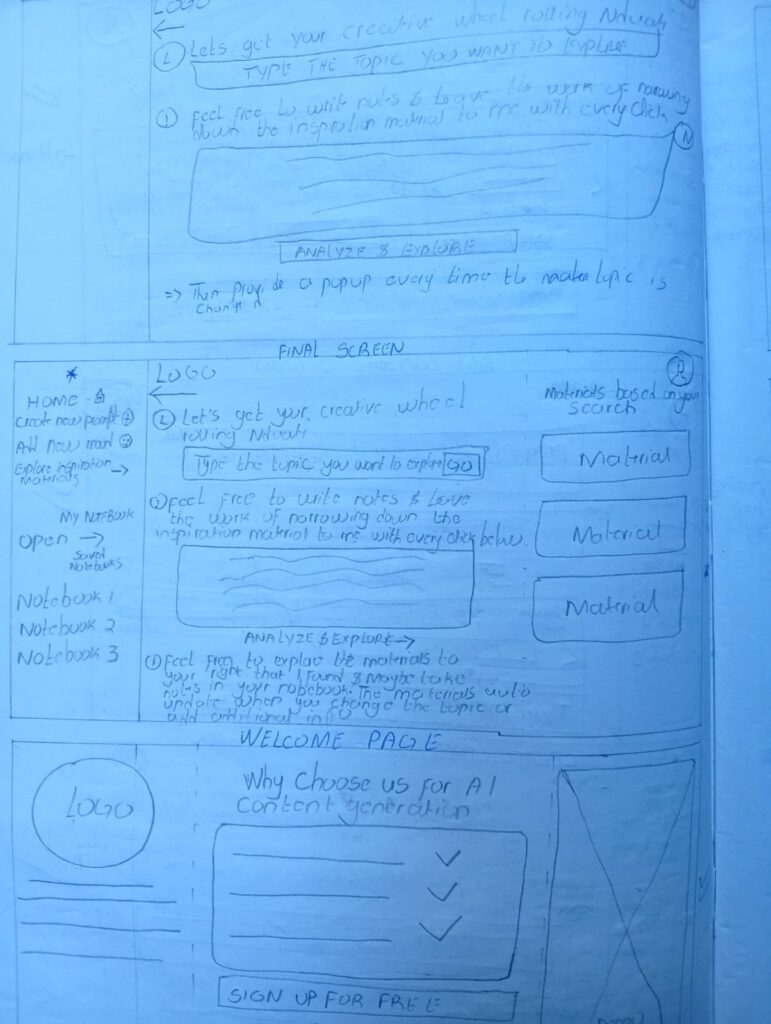 LOGO
Lets get your creative wheel rolling Nduati
TYPE THE TOPIC YOU WANT TO EXPLORE
Feel free to write notes & leave the work of narrowing
down the inspiration material to me with every click
N
ANALYZE & EXPLORE
=> Then provide a popup every time the topic is
FINAL SCREEN
HOME
Create new prompt
Add new
Explore inspiration
materials
MY NOTEBOOK
Open →
Saved
Notebooks
Notebook 1
Notebook 2
Notebook 3
LOGO
Let's get your creative wheel
rolling Nduati
Type the topic you want to explore GO
Feel free to write notes & leave
the work of narrowing down the
inspiration material to me with every click below.
ANALYZE & EXPLORE →
Feel free to explore the materials to
your right that I found & Maybe take
notes in your notebook. The materials auto
update when you change the topic or
add additional info
Materials based on your
search
Material
Material
Material
WELCOME PAGE
LOGO
Why Choose us for AI
Content generation
SIGN UP FOR FREE